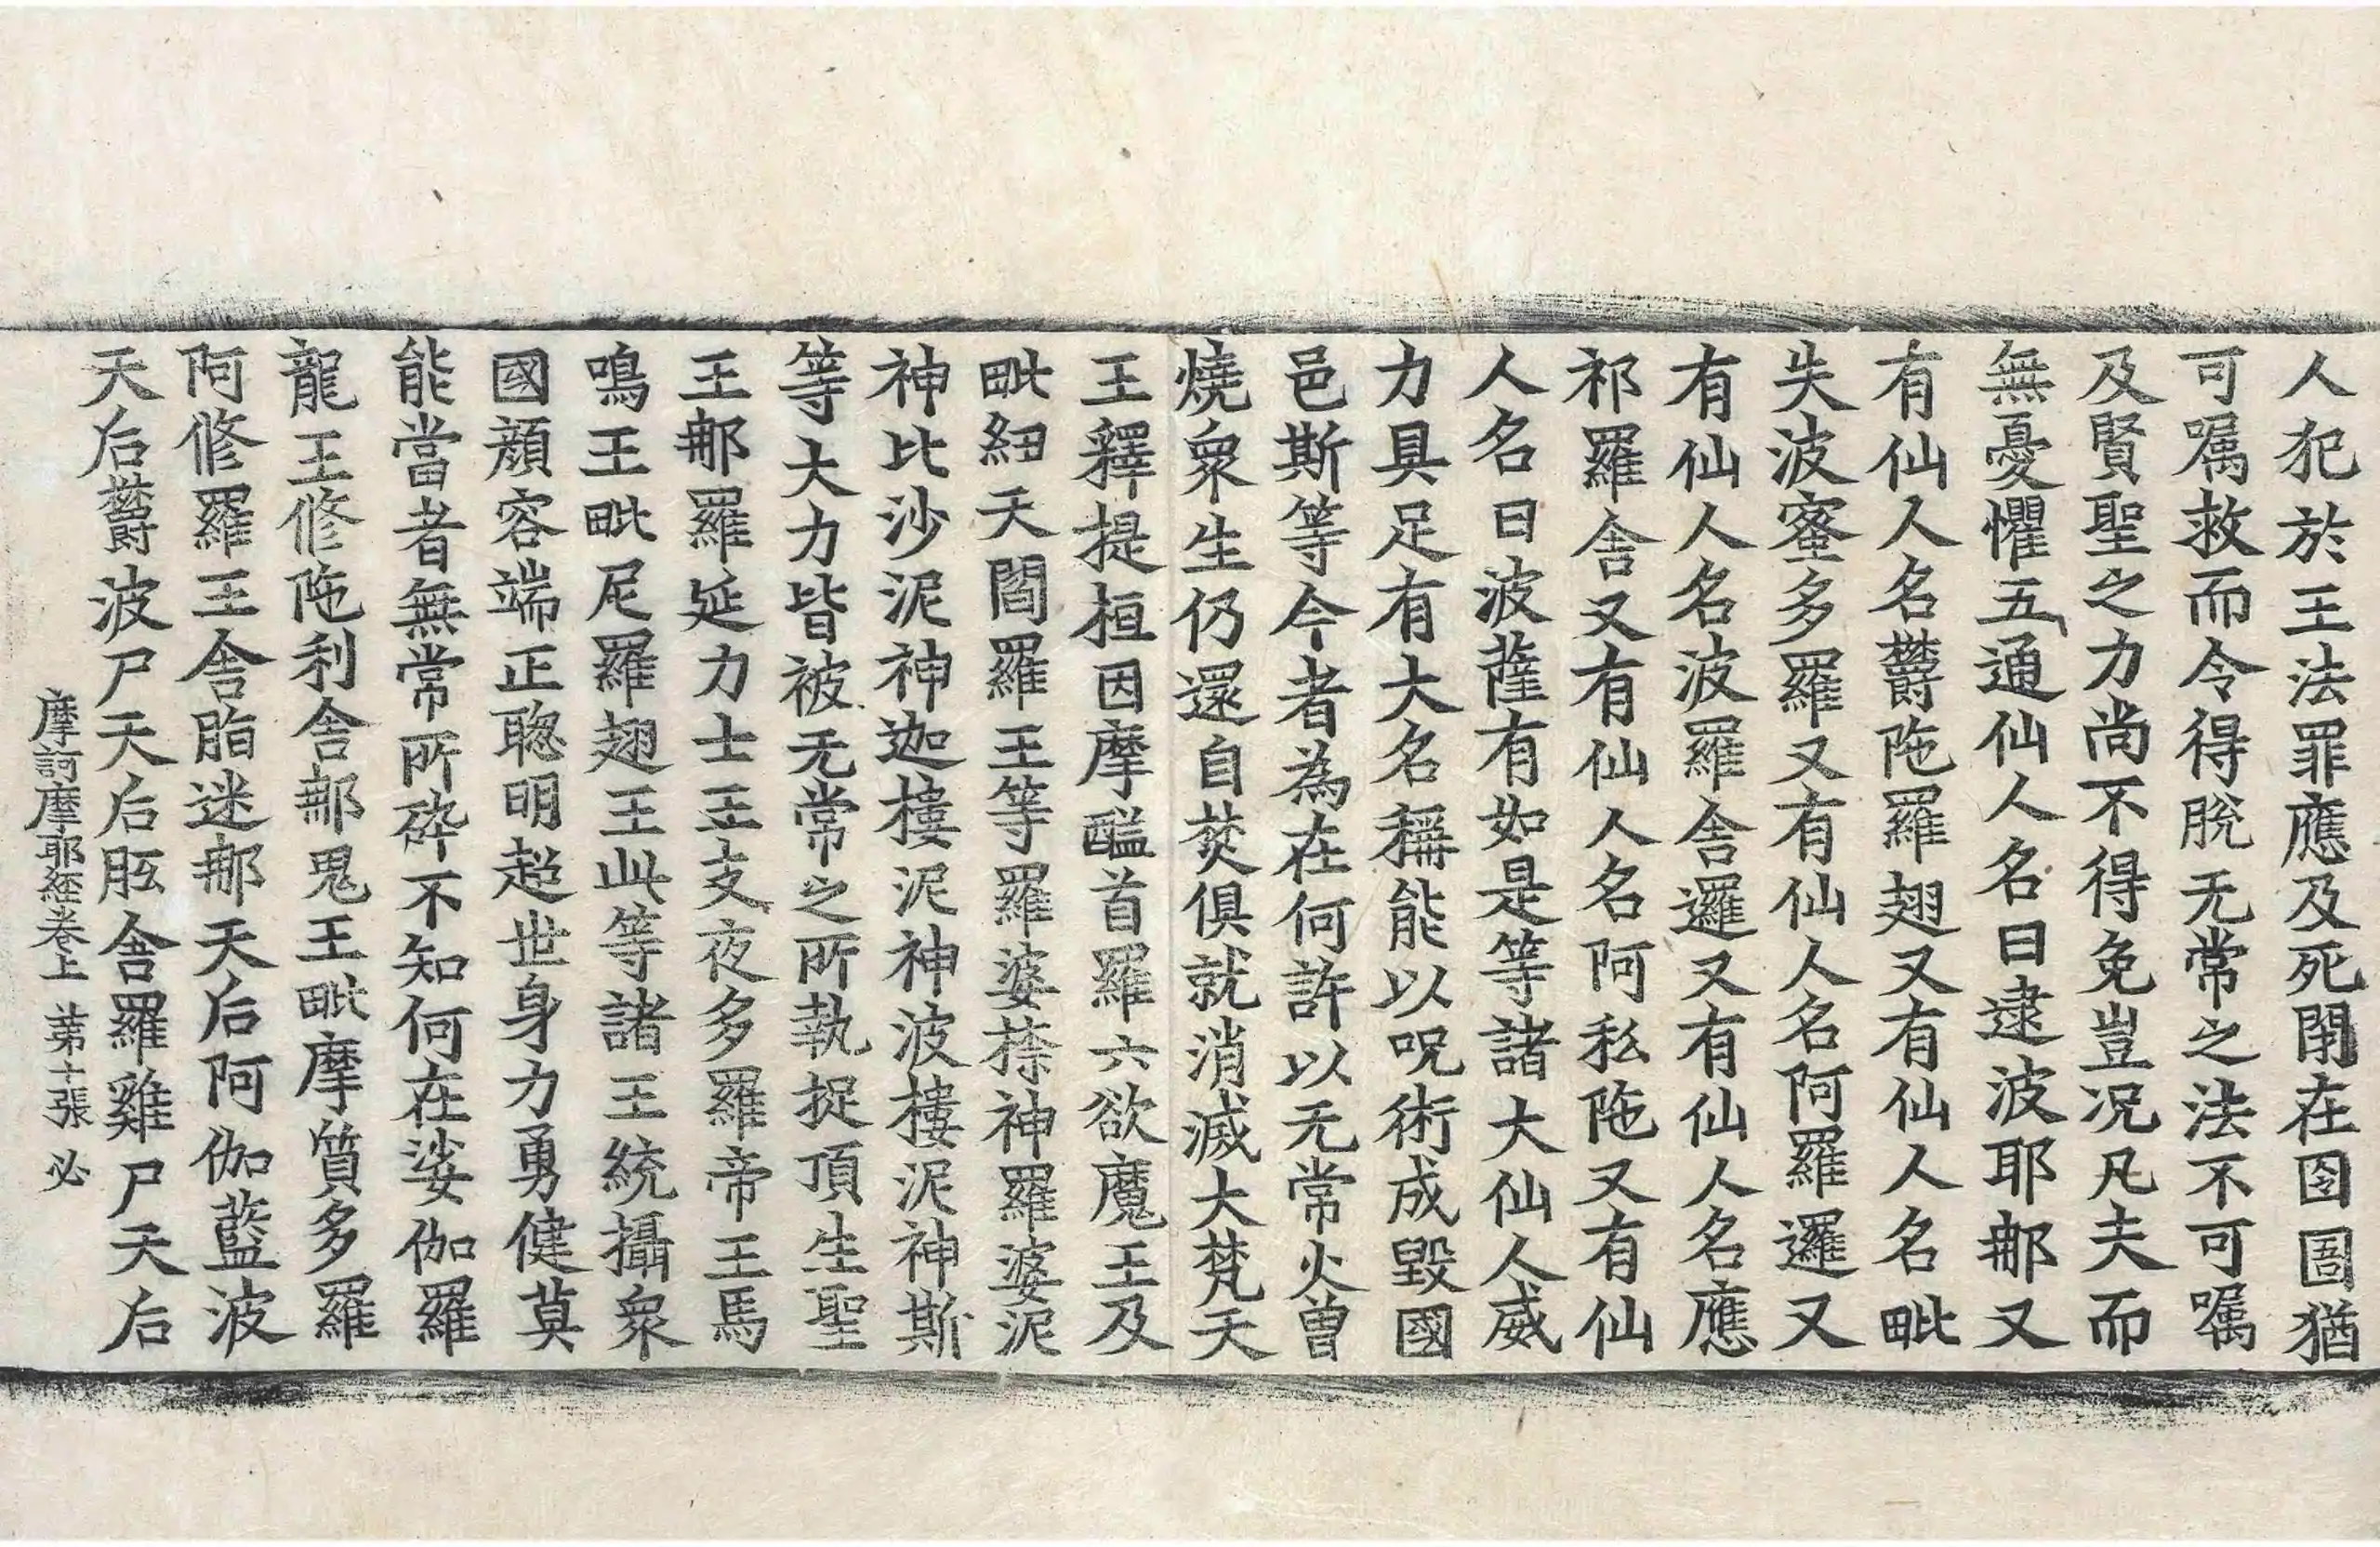 人犯於王法罪應及死閇在囹圄猶
可囑救而令得脫无常之法不可囑
及賢聖之力尚不得免豈況凡夫而
無憂懼五通仙人名曰逮波耶那又
有仙人名欝陁羅翅又有仙人名毗
失波蜜多羅又有仙人名阿羅邏又
有仙人名波羅舍邏又有仙人名應
祁羅舍又有仙人名阿私陁又有仙
人名曰波薩有如是等諸大仙人威
力具足有大名稱能以呪術成毀國
邑斯等今者為在何許以无常火曾
燒衆生仍還自焚俱就消滅大梵天
王釋提桓因摩醯首羅六欲魔王及
毗紐天閻羅王等羅婆㮈神羅婆泥
神比沙泥神迦樓泥神波樓泥神斯
等大力皆被无常之所執捉頂生聖
王那羅延力士王支夜多羅帝王馬
鳴王毗尼羅翅王此等諸王統攝衆
國顔容端正聦明超世身力勇健莫
能當者無常所碎不知何在娑伽羅
龍王修陁利舍那鬼王毗摩質多羅
阿修羅王舍脂迷那天后阿伽藍波
天后欝波尸天后胝舍羅雞尸天后
摩訶摩耶経卷上 第十張 必